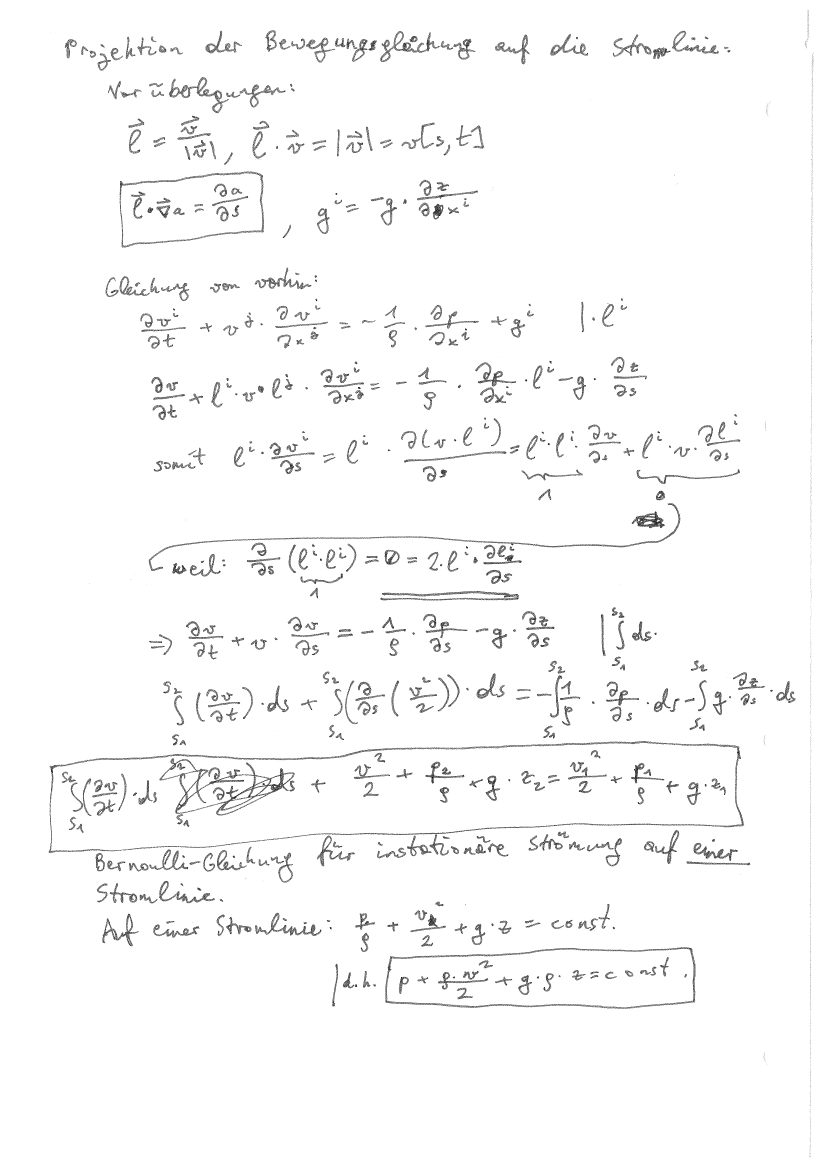 Projektion der Bewegungsgleichung auf die Stromlinie:
Vorüberlegungen:
$\vec{l} = \frac{\vec{v}}{|\vec{v}|}, \vec{l} \cdot \vec{v} = |\vec{v}| = v[s,t]$
$\vec{l} \cdot \vec{\nabla} a = \frac{\partial a}{\partial s}$, $g^i = -g \cdot \frac{\partial z}{\partial x^i}$
Gleichung von vorhin:
$\frac{\partial v^i}{\partial t} + v^j \cdot \frac{\partial v^i}{\partial x^j} = -\frac{1}{\rho} \cdot \frac{\partial p}{\partial x^i} + g^i \quad | \cdot l^i$
$\frac{\partial v}{\partial t} + l^i \cdot v \cdot l^j \cdot \frac{\partial v^i}{\partial x^j} = -\frac{1}{\rho} \cdot \frac{\partial p}{\partial x^i} \cdot l^i - g \cdot \frac{\partial z}{\partial s}$
somit $l^i \cdot \frac{\partial v^i}{\partial s} = l^i \cdot \frac{\partial (v \cdot l^i)}{\partial s} = \underbrace{l^i \cdot l^i}_{1} \cdot \frac{\partial v}{\partial s} + \underbrace{l^i \cdot v \cdot \frac{\partial l^i}{\partial s}}_{0}$
weil: $\frac{\partial}{\partial s} (\underbrace{l^i \cdot l^i}_{1}) = 0 = 2 \cdot l^i \cdot \frac{\partial l^i}{\partial s}$
$\Rightarrow \frac{\partial v}{\partial t} + v \cdot \frac{\partial v}{\partial s} = -\frac{1}{\rho} \cdot \frac{\partial p}{\partial s} - g \cdot \frac{\partial z}{\partial s} \quad | \int_{s_1}^{s_2} ds.$
$\int_{s_1}^{s_2} (\frac{\partial v}{\partial t}) \cdot ds + \int_{s_1}^{s_2} (\frac{\partial}{\partial s} (\frac{v^2}{2})) \cdot ds = -\int_{s_1}^{s_2} \frac{1}{\rho} \cdot \frac{\partial p}{\partial s} \cdot ds - \int_{s_1}^{s_2} g \cdot \frac{\partial z}{\partial s} \cdot ds$
$\int_{s_1}^{s_2} (\frac{\partial v}{\partial t}) \cdot ds + \frac{v^2}{2} + \frac{p_2}{\rho} + g \cdot z_2 = \frac{v_1^2}{2} + \frac{p_1}{\rho} + g \cdot z_1$
Bernoulli-Gleichung für instationäre Strömung auf einer
Stromlinie.
Auf einer Stromlinie: $\frac{p}{\rho} + \frac{v^2}{2} + g \cdot z = const.$
| d.h. $p + \frac{\rho \cdot v^2}{2} + g \cdot \rho \cdot z = const.$